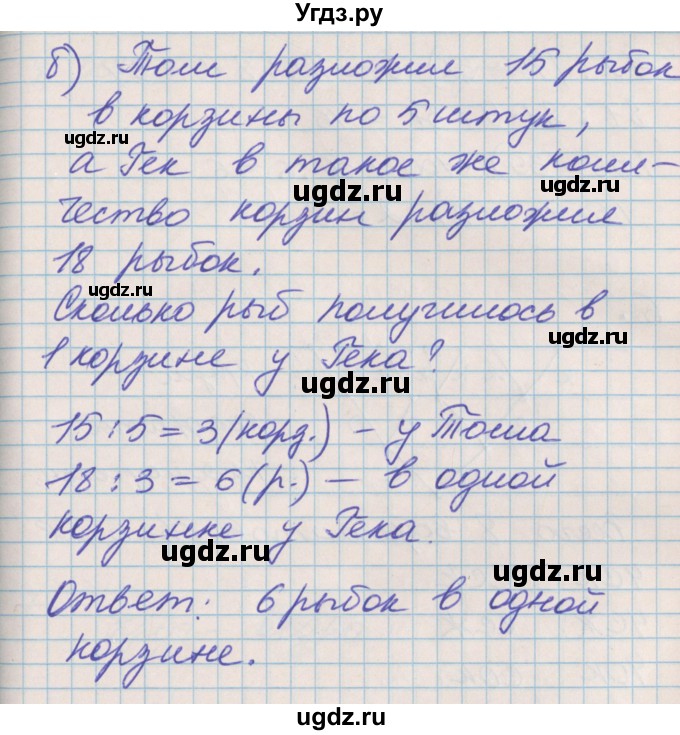 Угдз.ру
б) Том разложил 15 рыбок
в корзины по 5 штук,
а Гек в такое же коли-
чество корзин разложил
18 рыбок.
Сколько рыб получилось в
1 корзине у Гека?
15 : 5 = 3 (корз.) – у Тома
18 : 3 = 6 (р.) – в одной
корзинке у Гека.
Ответ: 6 рыбок в одной
корзине.
ugdz.ru
ugdz.ru
ugdz.ru
ugdz.ru
ugdz.ru
ugdz.ru
ugdz.ru
ugdz.ru
ugdz.ru
ugdz.ru
ugdz.ru